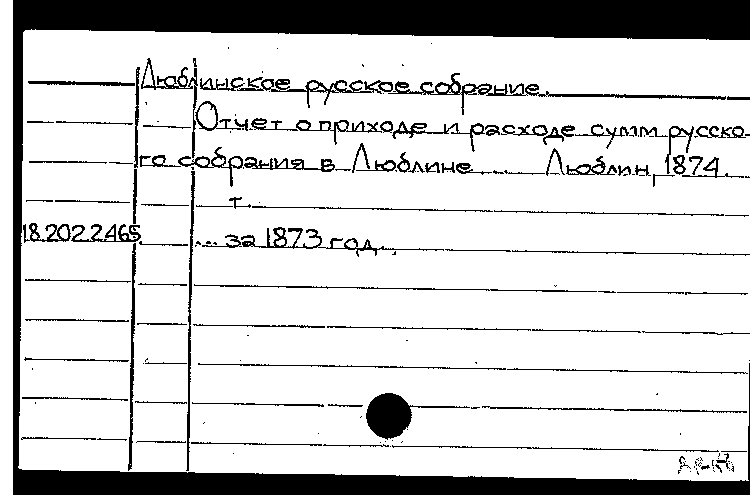 Люблинское русское собрание.
Отчет о приходе и расходе сумм русско-
го собрания в Люблине ... Люблин, 1874.
т.
18.202.2.465 ... за 1873 год...